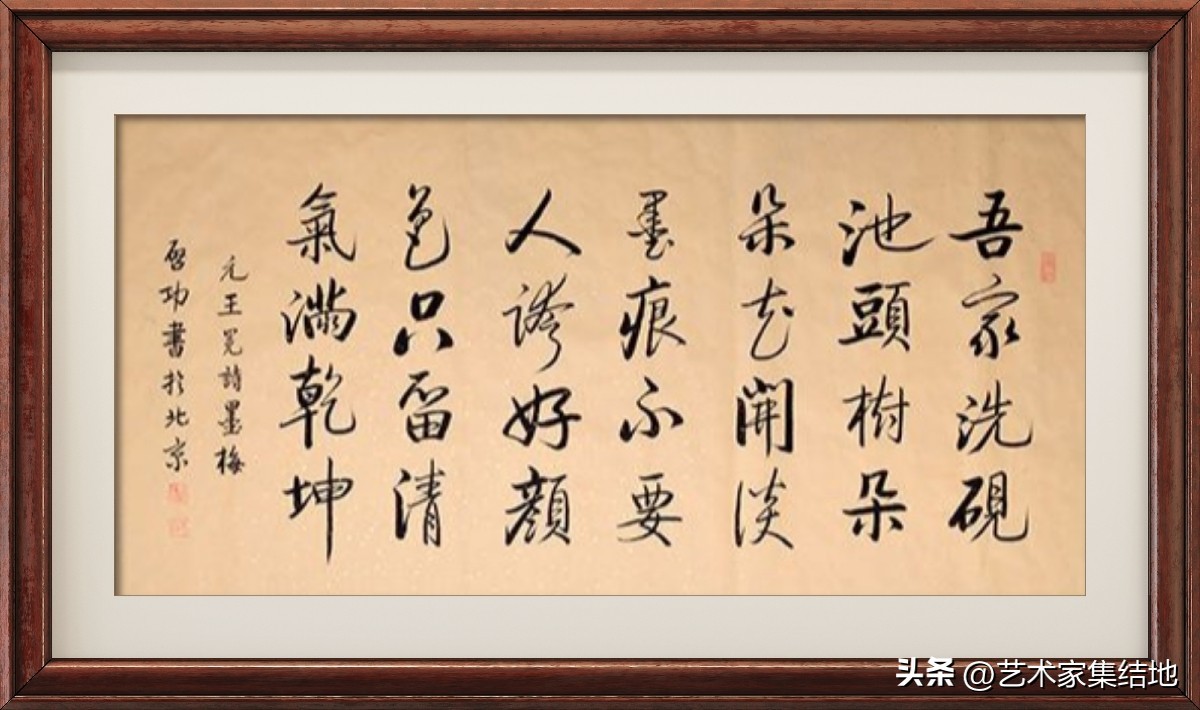 吾家洗硯
池頭樹朵
朵花開淡
墨痕不要
人誇好顏
色只留清
氣滿乾坤
元王冕詩墨梅
啓功書於北京
头条 @艺术家集结地